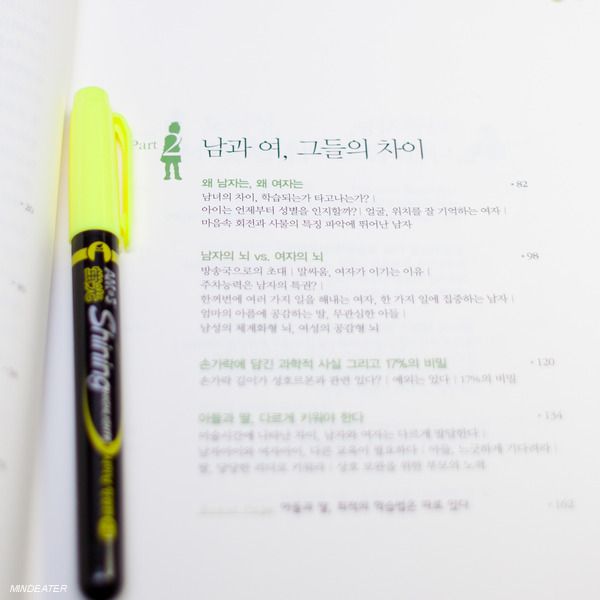 Part 2 남과 여, 그들의 차이
왜 남자는, 왜 여자는 • 82
남녀의 차이, 학습되는가 타고나는가? |
아이는 언제부터 성별을 인지할까? | 얼굴, 위치를 잘 기억하는 여자 |
마음속 회전과 사물의 특징 파악에 뛰어난 남자
남자의 뇌 vs. 여자의 뇌 • 98
방송국으로의 초대 | 말싸움, 여자가 이기는 이유 |
주차능력은 남자의 특권? |
한꺼번에 여러 가지 일을 해내는 여자, 한 가지 일에 집중하는 남자 |
엄마의 아픔에 공감하는 딸, 무관심한 아들 |
남성의 체계화형 뇌, 여성의 공감형 뇌
손가락에 담긴 과학적 사실 그리고 17%의 비밀 • 120
손가락 길이가 성호르몬과 관련 있다? | 예외는 있다 | 17%의 비밀
아들과 딸, 다르게 키워야 한다 • 134
미술시간에 나타난 차이, 남자와 여자는 다르게 발달한다 |
남자아이와 여자아이, 다른 교육이 필요하다 | 아들, 느긋하게 기다려라 |
딸, 당당한 리더로 키워라 | 상호 보완을 위한 부모의 노력
아들과 딸, 최적의 학습법은 따로 있다 • 162
Shining
MINDEATER